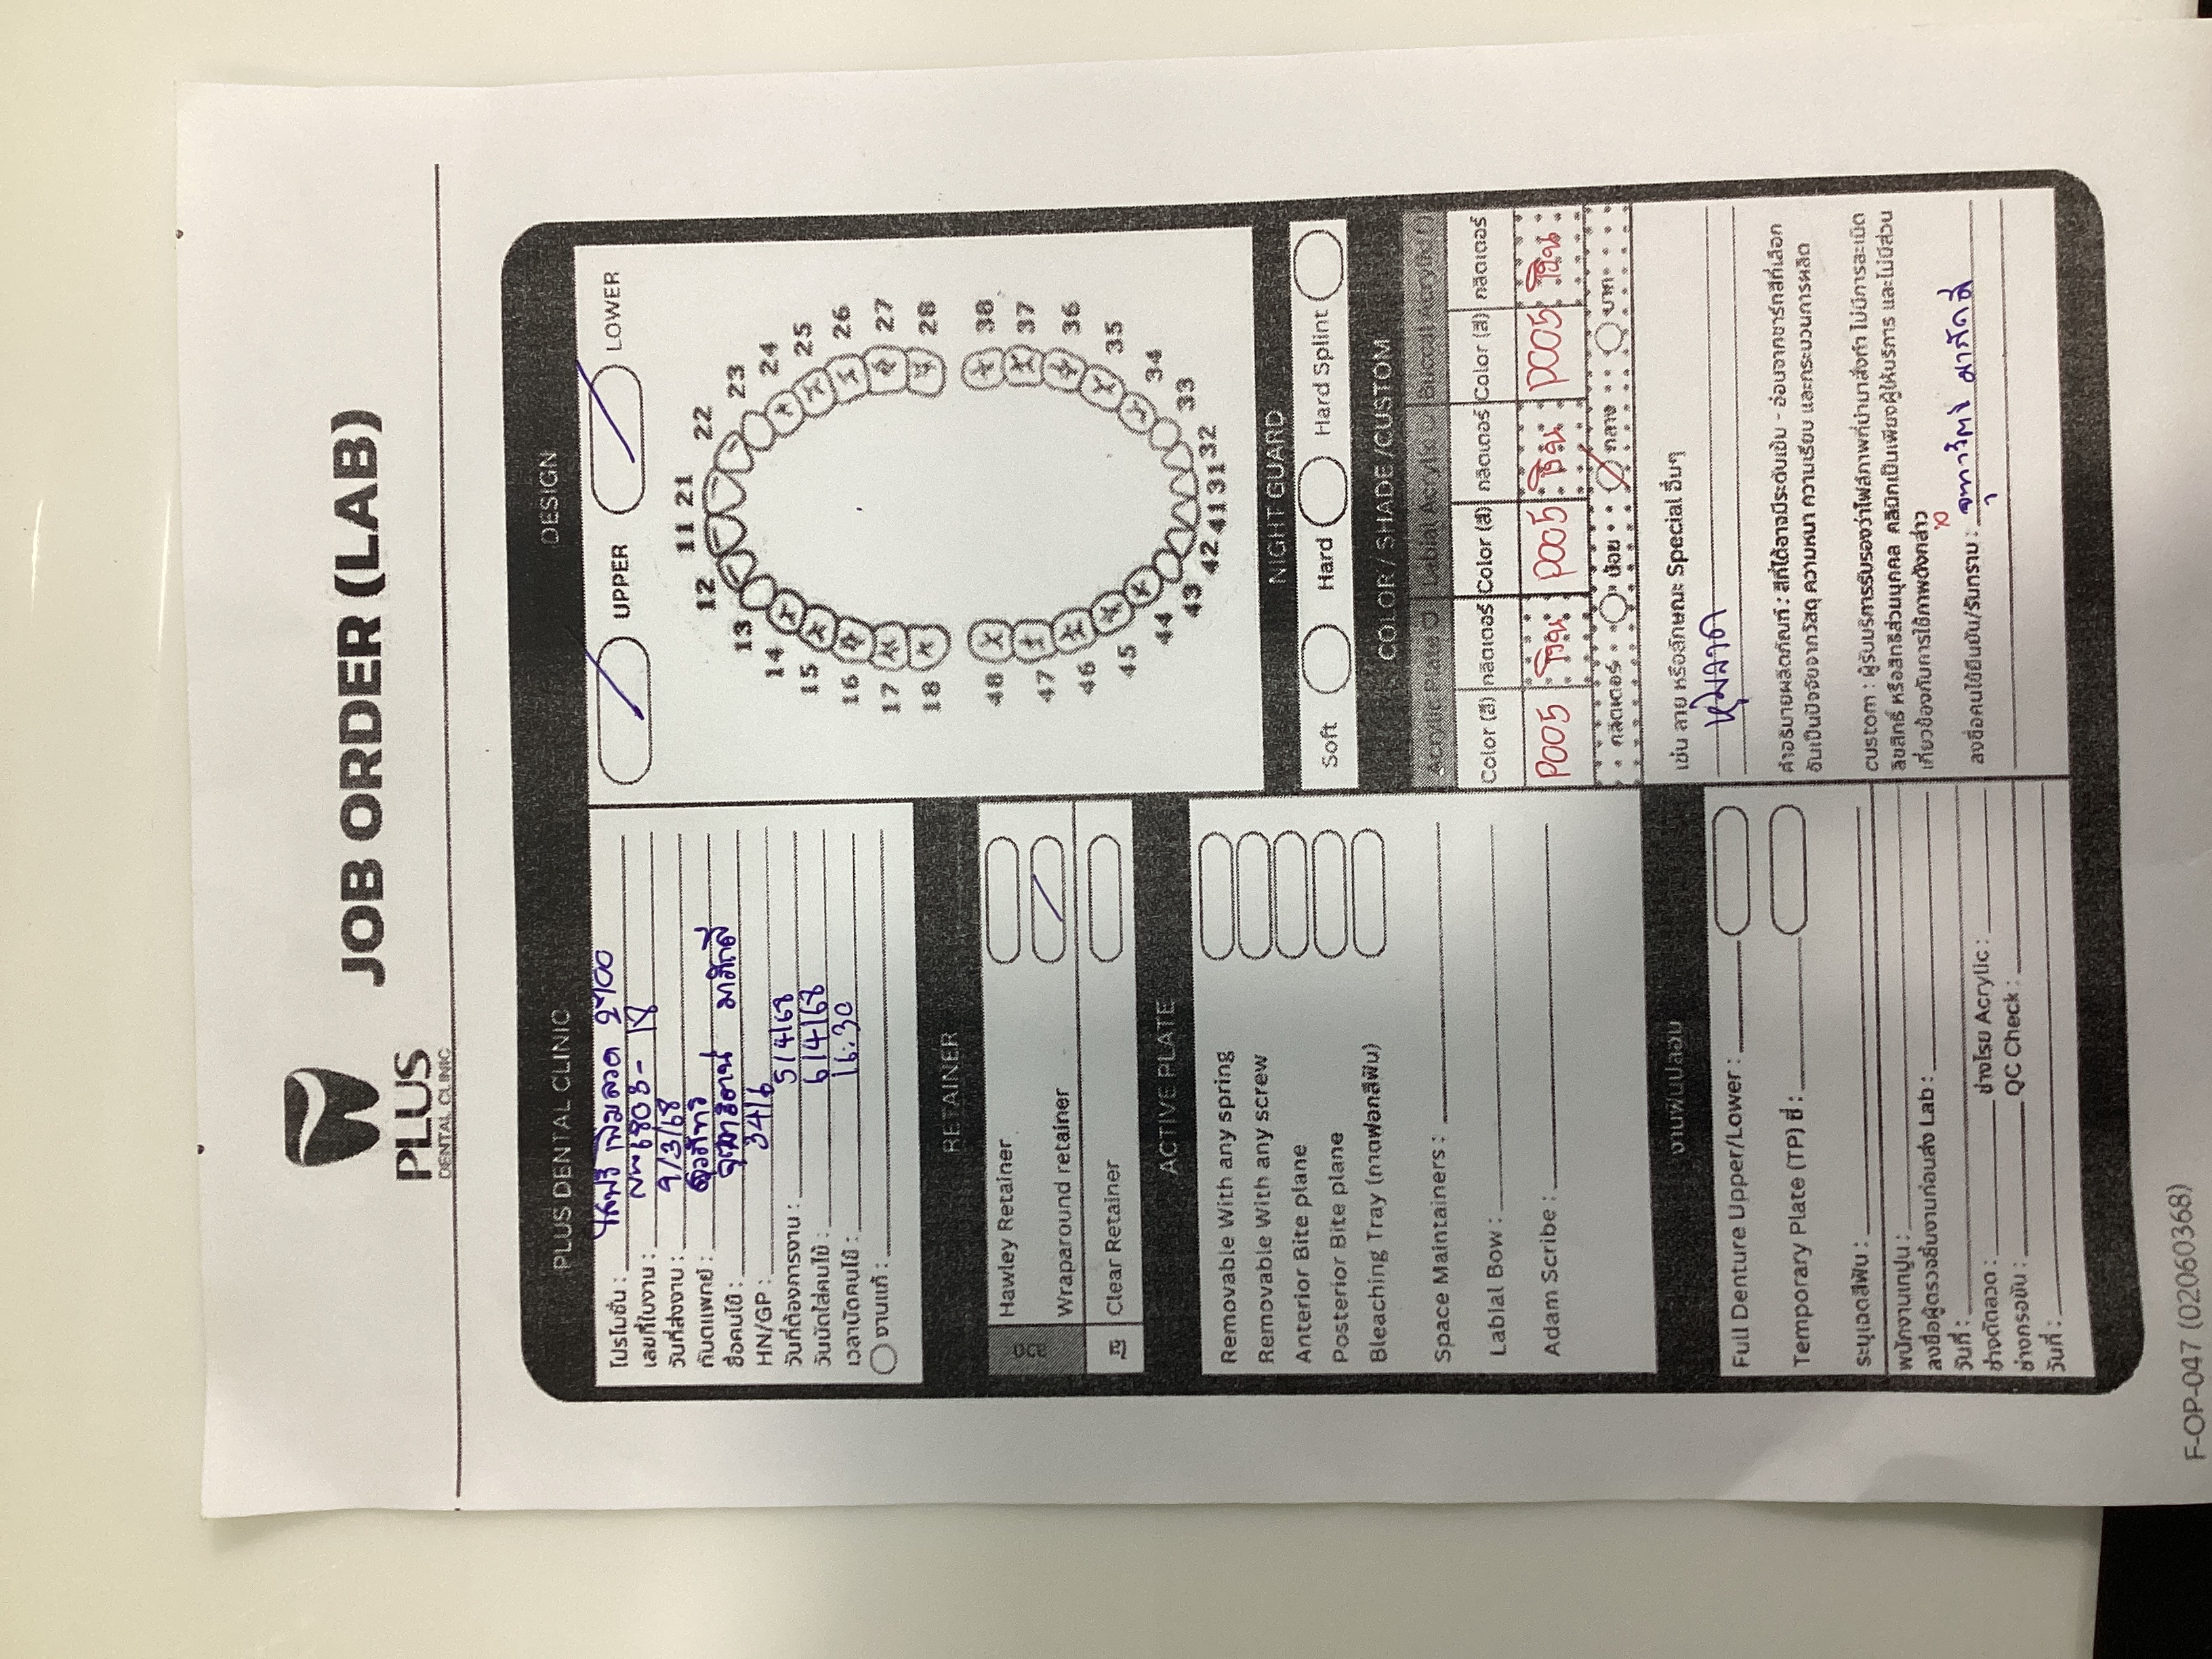 PLUS
DENTAL CLINIC
JOB ORDER (LAB)
PLUS DENTAL CLINIC
โปรโมชั่น : ใสฟรี เพิ่มลวด 2700
เลขที่ใบงาน : 6803- 18
วันที่ส่งงาน : 9/3/68
ทันตแพทย์ :
ชื่อคนไข้ : จุฑารัตน์ มาภักดี
HN/GP : 3416
วันที่ต้องการงาน : 5/4/68
วันนัดใส่คนไข้ : 6/4/68
เวลานัดคนไข้ : 16:30
งานแก้ :
RETAINER
ลวด
Hawley Retainer
Wraparound retainer
ใส
Clear Retainer
ACTIVE PLATE
Removable With any spring
Removable With any screw
Anterior Bite plane
Posterior Bite plane
Bleaching Tray (ถาดฟอกสีฟัน)
Space Maintainers :
Labial Bow :
Adam Scribe :
งานฟันปลอม
Full Denture Upper/Lower :
Temporary Plate (TP) ซี่ :
ระบุเฉดสีฟัน :
พนักงานเทปูน :
ลงชื่อผู้ตรวจชิ้นงานก่อนส่ง Lab :
วันที่ :
ช่างดัดลวด : ช่างโรย Acrylic :
ช่างกรอขัน : QC Check :
วันที่ :
DESIGN
UPPER LOWER
11 21
12 22
13 23
14 24
15 25
16 26
17 27
18 28
48 38
47 37
46 36
45 35
44 34
43 33
42 41 31 32
NIGHT GUARD
Soft Hard Hard Splint
COLOR / SHADE /CUSTOM
Acrylic Plate Labial Acrylic Buccal Acrylic
Color (สี) กลิตเตอร์ Color (สี) กลิตเตอร์ Color (สี) กลิตเตอร์
P005 P005 P005
กลิตเตอร์ น้อย กลาง มาก
เช่น ลาย หรือลักษณะ Special อื่นๆ
หุ้มลวด
คำอธิบายผลิตภัณฑ์ : สีที่ได้อาจมีระดับเข้ม - อ่อนจากชาร์ทสีที่เลือก
อันเป็นปัจจัยจากวัสดุ ความหนา ความเรียบ และกระบวนการผลิต
custom : ผู้รับบริการรับรองว่าไฟล์ภาพที่นำมาสั่งทำ ไม่มีการละเมิด
ลิขสิทธิ์ หรือสิทธิส่วนบุคคล คลินิกเป็นเพียงผู้ให้บริการ และไม่มีส่วน
เกี่ยวข้องกับการใช้ภาพดังกล่าว
ลงชื่อคนไข้ยืนยัน/รับทราบ : จุฑารัตน์ มาภักดี
F-OP-047 (02060368)